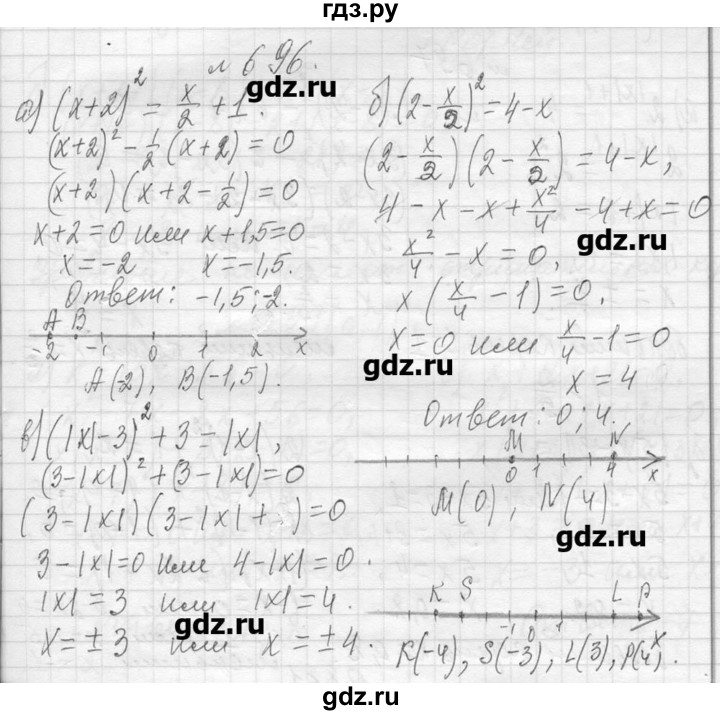 гдз.ру
№ 696.
а) (x+2)² = x/2 + 1.
(x+2)² - 1/2 (x+2) = 0
(x+2)(x+2-1/2) = 0
x+2=0 или x+1,5=0
x=-2 x=-1,5.
Ответ: -1,5; -2.
A B
-2 -1 0 1 2 x
A(-2), B(-1,5).
б) (2 - x/2)² = 4-x
(2 - x/2)(2 - x/2) = 4-x,
4 - x - x + x²/4 - 4 + x = 0
x²/4 - x = 0,
x(x/4 - 1) = 0,
x=0 или x/4 - 1 = 0
x = 4
Ответ: 0; 4.
M N
0 1 4 x
M(0), N(4)
в) (|x|-3)² + 3 = |x|,
(3-|x|)² + (3-|x|) = 0
(3-|x|)(3-|x|+ ) = 0
3-|x|=0 или 4-|x|=0.
|x|=3 или |x|=4.
x=±3 или x=±4.
K S L P
-1 0 1 x
K(-4), S(-3), L(3), P(4).
gdz.ru
gdz.ru
gdz.ru
gdz.ru
gdz.ru
gdz.ru
gdz.ru